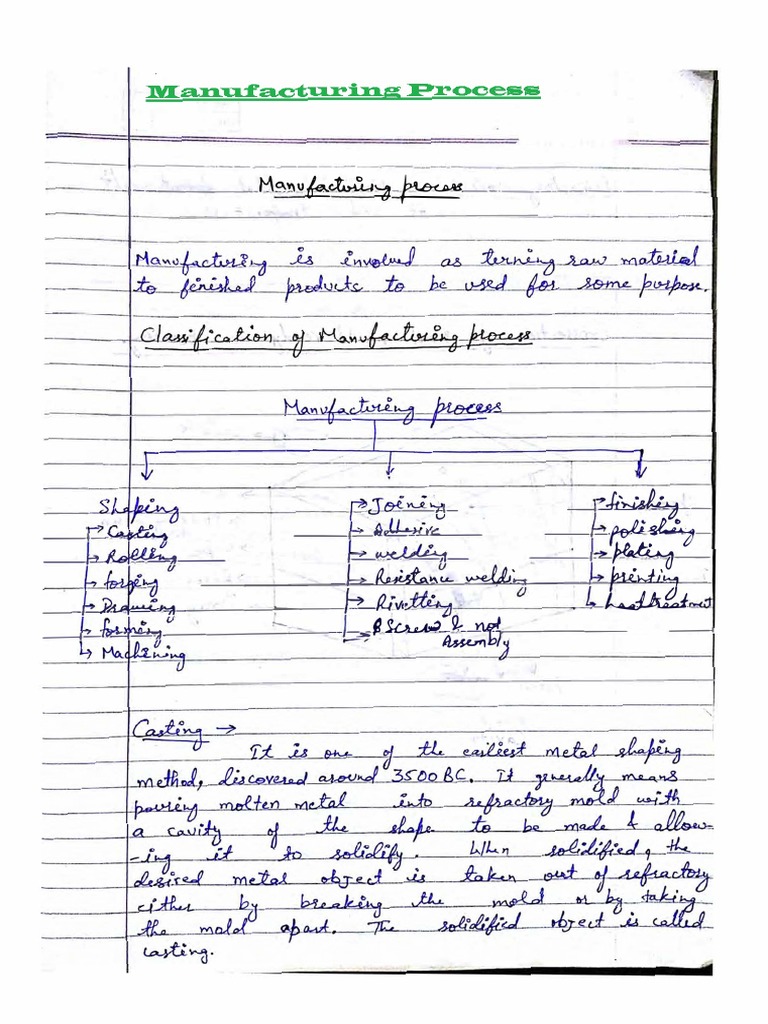 Manufacturing Process
Manufacturing process
Manufacturing is involved as terning raw material
to finished products to be used for some purpose.
Classification of Manufacturing process
Manufacturing process
Shaping
Casting
Rolling
forging
Drawing
forming
Machining
Joining
Adhesive
welding
Resistance welding
Rivetting
Screw & not
Assembly
finishing
polishing
plating
printing
heattreatment
Casting →
It is one of the earliest metal shaping
method, discovered around 3500 BC. It generally means
pouring molten metal into refractory mold with
a cavity of the shape to be made & allow-
-ing it to solidify. When solidified, the
desired metal object is taken out of refractory
either by breaking the mold or by taking
the mold apart. The solidified object is called
casting.